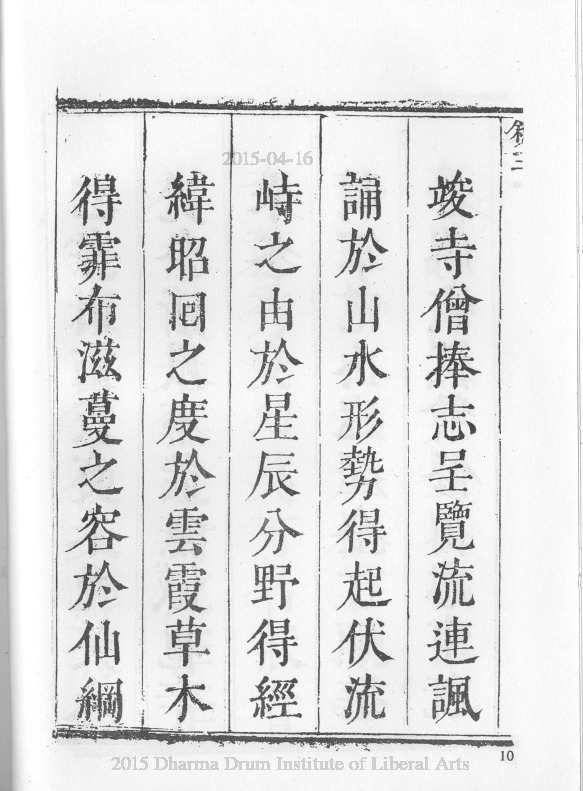 叙二
竣寺僧捧志呈覽流連諷
誦於山水形勢得起伏流
峙之由於星辰分野得經
緯昭回之度於雲霞草木
得霏布滋蔓之容於仙綱
10
2015-04-16
2015 Dharma Drum Institute of Liberal Arts